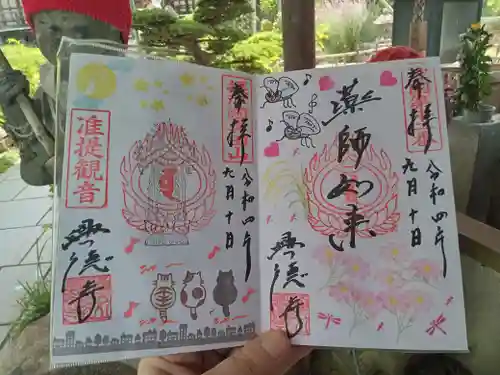 奉拝
令和四年
九月十日
薬師如来
興徳寺
奉拝
令和四年
九月十日
准提観音
興徳寺